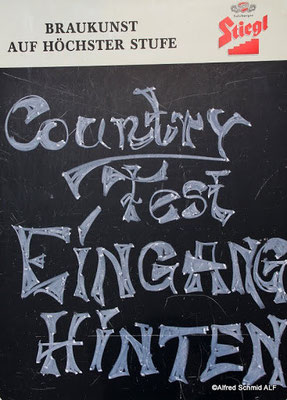 BRAUKUNST
AUF HÖCHSTER STUFE
Salzburger
Stiegl
Country
Fest
EINGANG
HINTEN
©Alfred Schmid ALF